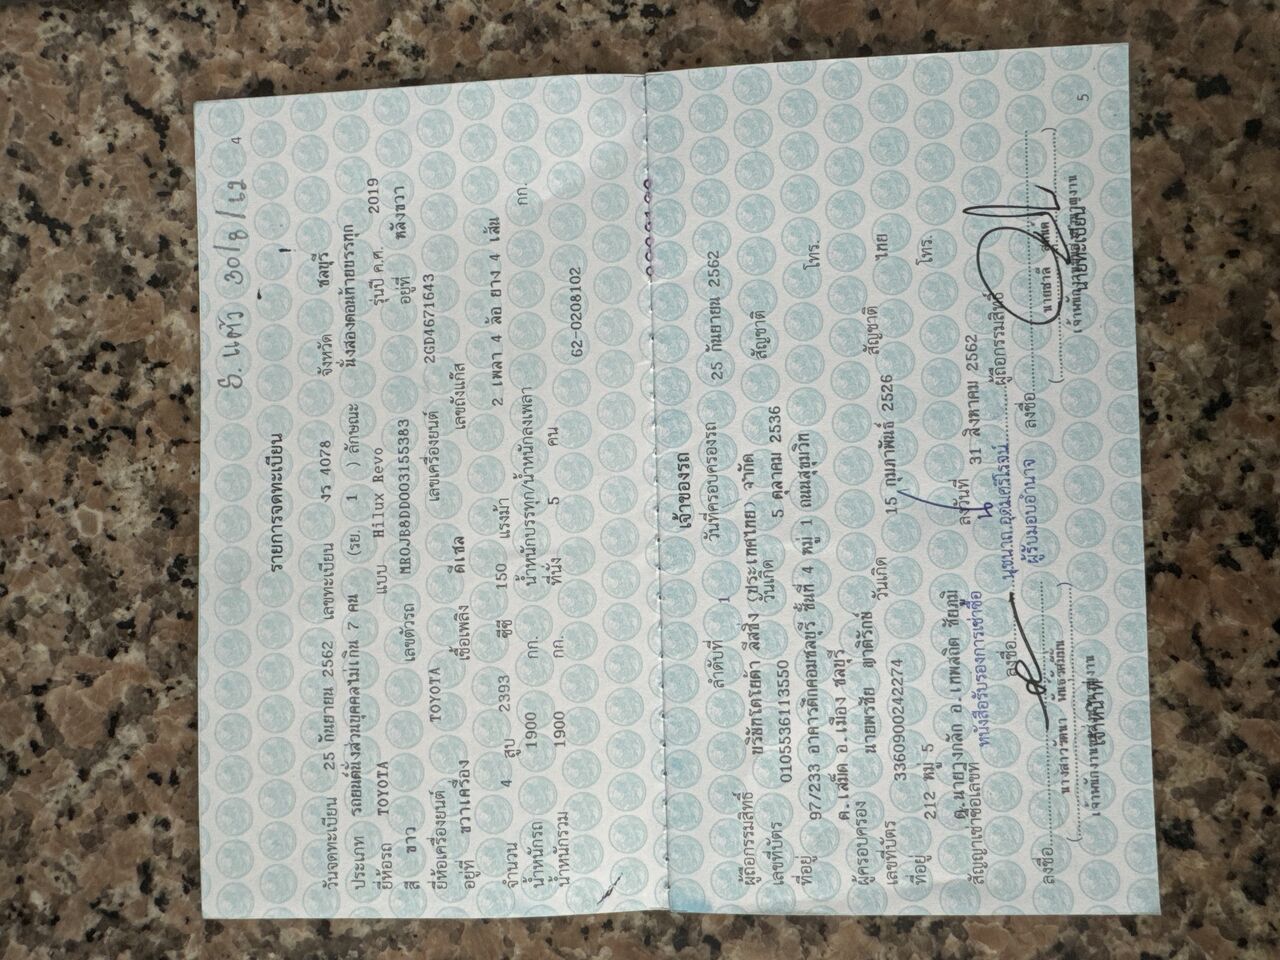 ธ. แต๊ว 30/8/62
4
รายการจดทะเบียน
วันจดทะเบียน 25 กันยายน 2562 เลขทะเบียน งร 4078 จังหวัด ชลบุรี
ประเภท รถยนต์นั่งส่วนบุคคลไม่เกิน 7 คน (รย. 1 ) ลักษณะ นั่งสองตอนท้ายบรรทุก
ยี่ห้อรถ TOYOTA แบบ Hilux Revo รุ่นปี ค.ศ. 2019
สี ขาว เลขตัวรถ MR0JB8DD003155383 อยู่ที่ หลังขวา
ยี่ห้อเครื่องยนต์ TOYOTA เลขเครื่องยนต์ 2GD4671643
อยู่ที่ ขวาเครื่อง เชื้อเพลิง ดีเซล เลขถังแก๊ส
จำนวน 4 สูบ 2393 ซีซี 150 แรงม้า 2 เพลา 4 ล้อ ยาง 4 เส้น
น้ำหนักรถ 1900 กก. น้ำหนักบรรทุก/น้ำหนักลงเพลา กก.
น้ำหนักรวม 1900 กก. ที่นั่ง 5 คน 62-0208102
เจ้าของรถ
ลำดับที่ 1 วันที่ครอบครองรถ 25 กันยายน 2562
ผู้ถือกรรมสิทธิ์ บริษัทโตโยต้า ลีสซิ่ง (ประเทศไทย) จำกัด
เลขที่บัตร 0105536113550 วันเกิด 5 ตุลาคม 2536 สัญชาติ
ที่อยู่ 97/233 อาคารดิกคอมชลบุรี ชั้นที่ 4 หมู่ 1 ถนนสุขุมวิท โทร.
ต.เสม็ด อ.เมือง ชลบุรี
ผู้ครอบครอง นายพรชัย ญาติรักษ์
เลขที่บัตร 3360900242274 วันเกิด 15 กุมภาพันธ์ 2526 สัญชาติ ไทย
ที่อยู่ 212 หมู่ 5 โทร.
ต.นายางกลัก อ.เทพสถิต ชัยภูมิ
สัญญาเช่าซื้อเลขที่ หนังสือรับรองการเช่าซื้อ ลงวันที่ 31 สิงหาคม 2562
ลงชื่อ นุชนาถ อุดมศรีโรจน์ ผู้ถือกรรมสิทธิ์
ผู้รับมอบอำนาจ
ลงชื่อ ลงชื่อ
(นางสาววัฒนา) (นายชาลี)
เจ้าหน้าที่ นายทะเบียน
5